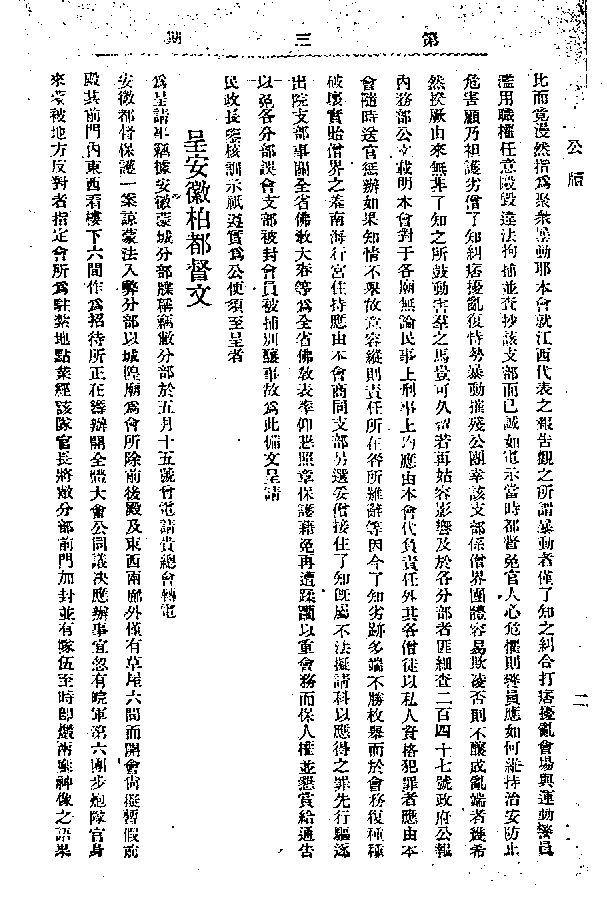 第三期
公牘
二
此而竟漫然指為聚衆暴動耶本會就江西代表之報告觀之所謂暴動者僅了知之糾合打痞擾亂會場與運動警員
濫用職權任意毆毀違法拘捕並查抄該支部而已誠如電示當時都督兔官人心危懼則警員應如何維持治安防止
危害顧乃袒護劣僧了知糾痞擾亂復恃勢暴動摧殘公團幸該支部係僧界團體容易欺凌否則不釀成亂端者幾希
然揆厥由來無非了知之所鼓動害羣之馬豈可久留若再姑容影響及於各分部者匪細查二百四十七號政府公報
內務部公文載明本會對于各廟無論民事上刑事上均應由本會代負責任外其各僧徒以私人資格犯罪者應由本
會隨時送官懲辦如果知情不舉故意容縱則責任所在咎所難辭等因今了知劣跡多端不勝枚舉而於會務復種種
破壞實貽僧界之羞南海行宮住持應由本會商同支部另選妥僧接住了知旣屬不法擬請科以應得之罪先行驅逐
出院支部事關全省佛敎大衆等為全省佛敎表率仰懇照章保護藉免再遭蹂躪以重會務而保人權並懇賞給通告
以免各分部誤會支部被封會員被捕別釀事故為此備文呈請
民政長鑒核訓示祇遵實為公便須至呈者
呈安徽柏都督文
為呈請事竊據安徽蒙城分部牒稱竊敝分部於五月十五號曾電請貴總會轉電
安徽都督保護一案諒蒙法入弊分部以城隍廟為會所除前後殿及東西兩廊外僅有草屋六間而開會尙擬暫假前
殿其前門內東西看樓下六間作為招待所正在籌辦開全體大會公同議决應辦事宜忽有皖軍第六團步炮隊官身
來蒙被地方反對者指定會所為駐紮地點業經該隊官長將敝分部前門加封並有隊伍至時卽燬兩廡神像之語果